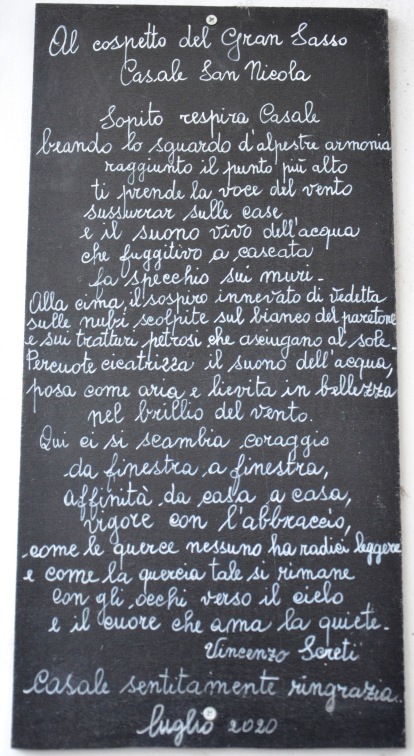 Al cospetto del Gran Sasso
Casale San Nicola
Sopito respira Casale
beando lo sguardo d'alpestre armonia
raggiunto il punto più alto
ti prende la voce del vento
sussurrar sulle case
e il suono vivo dell'acqua
che fuggitivo a cascata
fa specchio sui muri.
Alla cima, il sospiro innevato di vedetta
sulle nubi scolpite sul bianco del paretone
e sui tratturi petrosi che asciugano al sole.
Percuote cicatrizza il suono dell'acqua,
posa come aria e lievita in bellezza
nel brillio del vento.
Qui ci si scambia coraggio
da finestra a finestra,
affinità da casa a casa,
vigore con l'abbraccio,
come le querce nessuno ha radici leggere
e come la quercia tale si rimane
con gli occhi verso il cielo
e il cuore che ama la quiete.
Vincenzo Screti
Casale sentitamente ringrazia..
luglio 2020